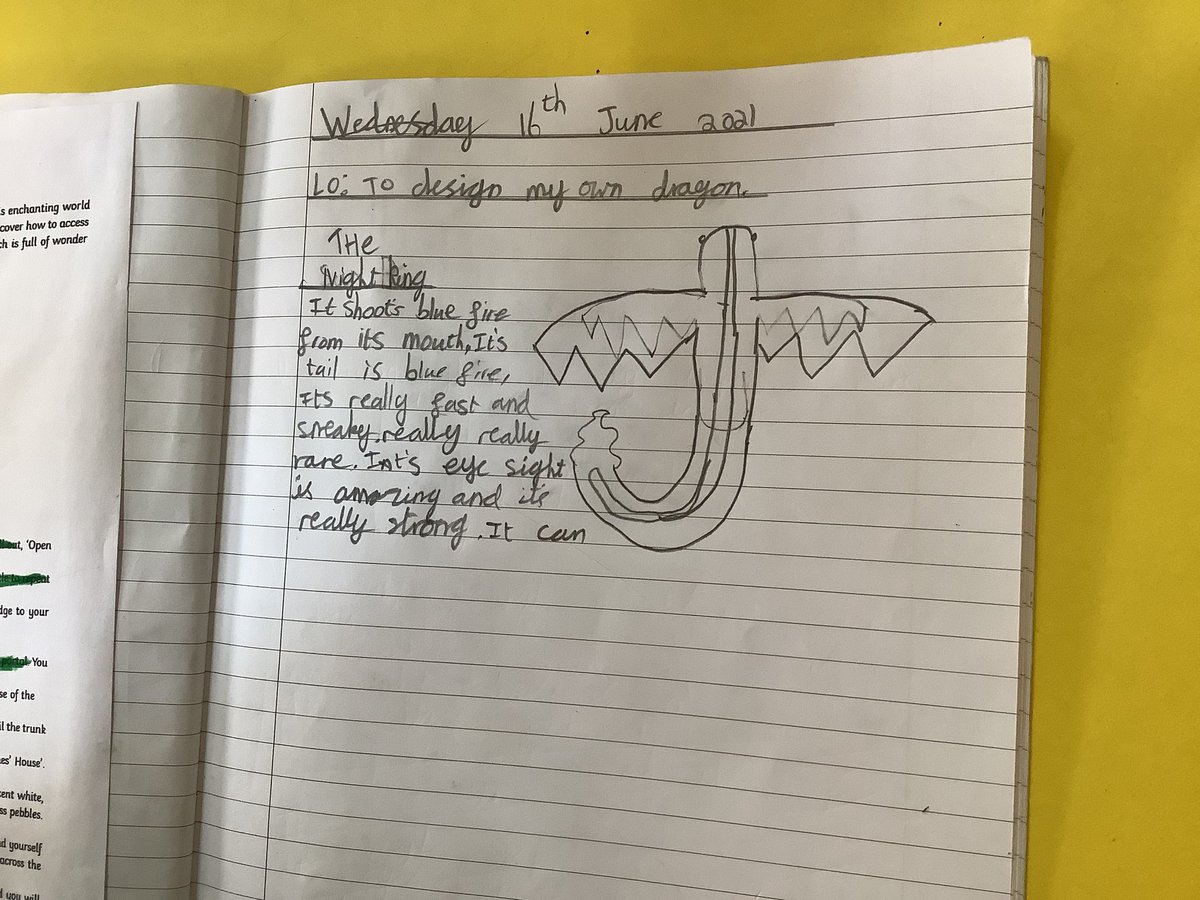 s enchanting world
cover how to access
ch is full of wonder
out, 'Open
to repeat
dge to your
portal. You
se of the
il the trunk
es' House'.
cent white,
ss pebbles.
d yourself
across the
d you will
Wednesday 16th June 2021
LO: To design my own dragon.
THe
Night King
It shoots blue fire
from its mouth, It's
tail is blue fire,
Its really fast and
sneaky. really really
rare. It's eye sight
is amazing and its
really strong. It can